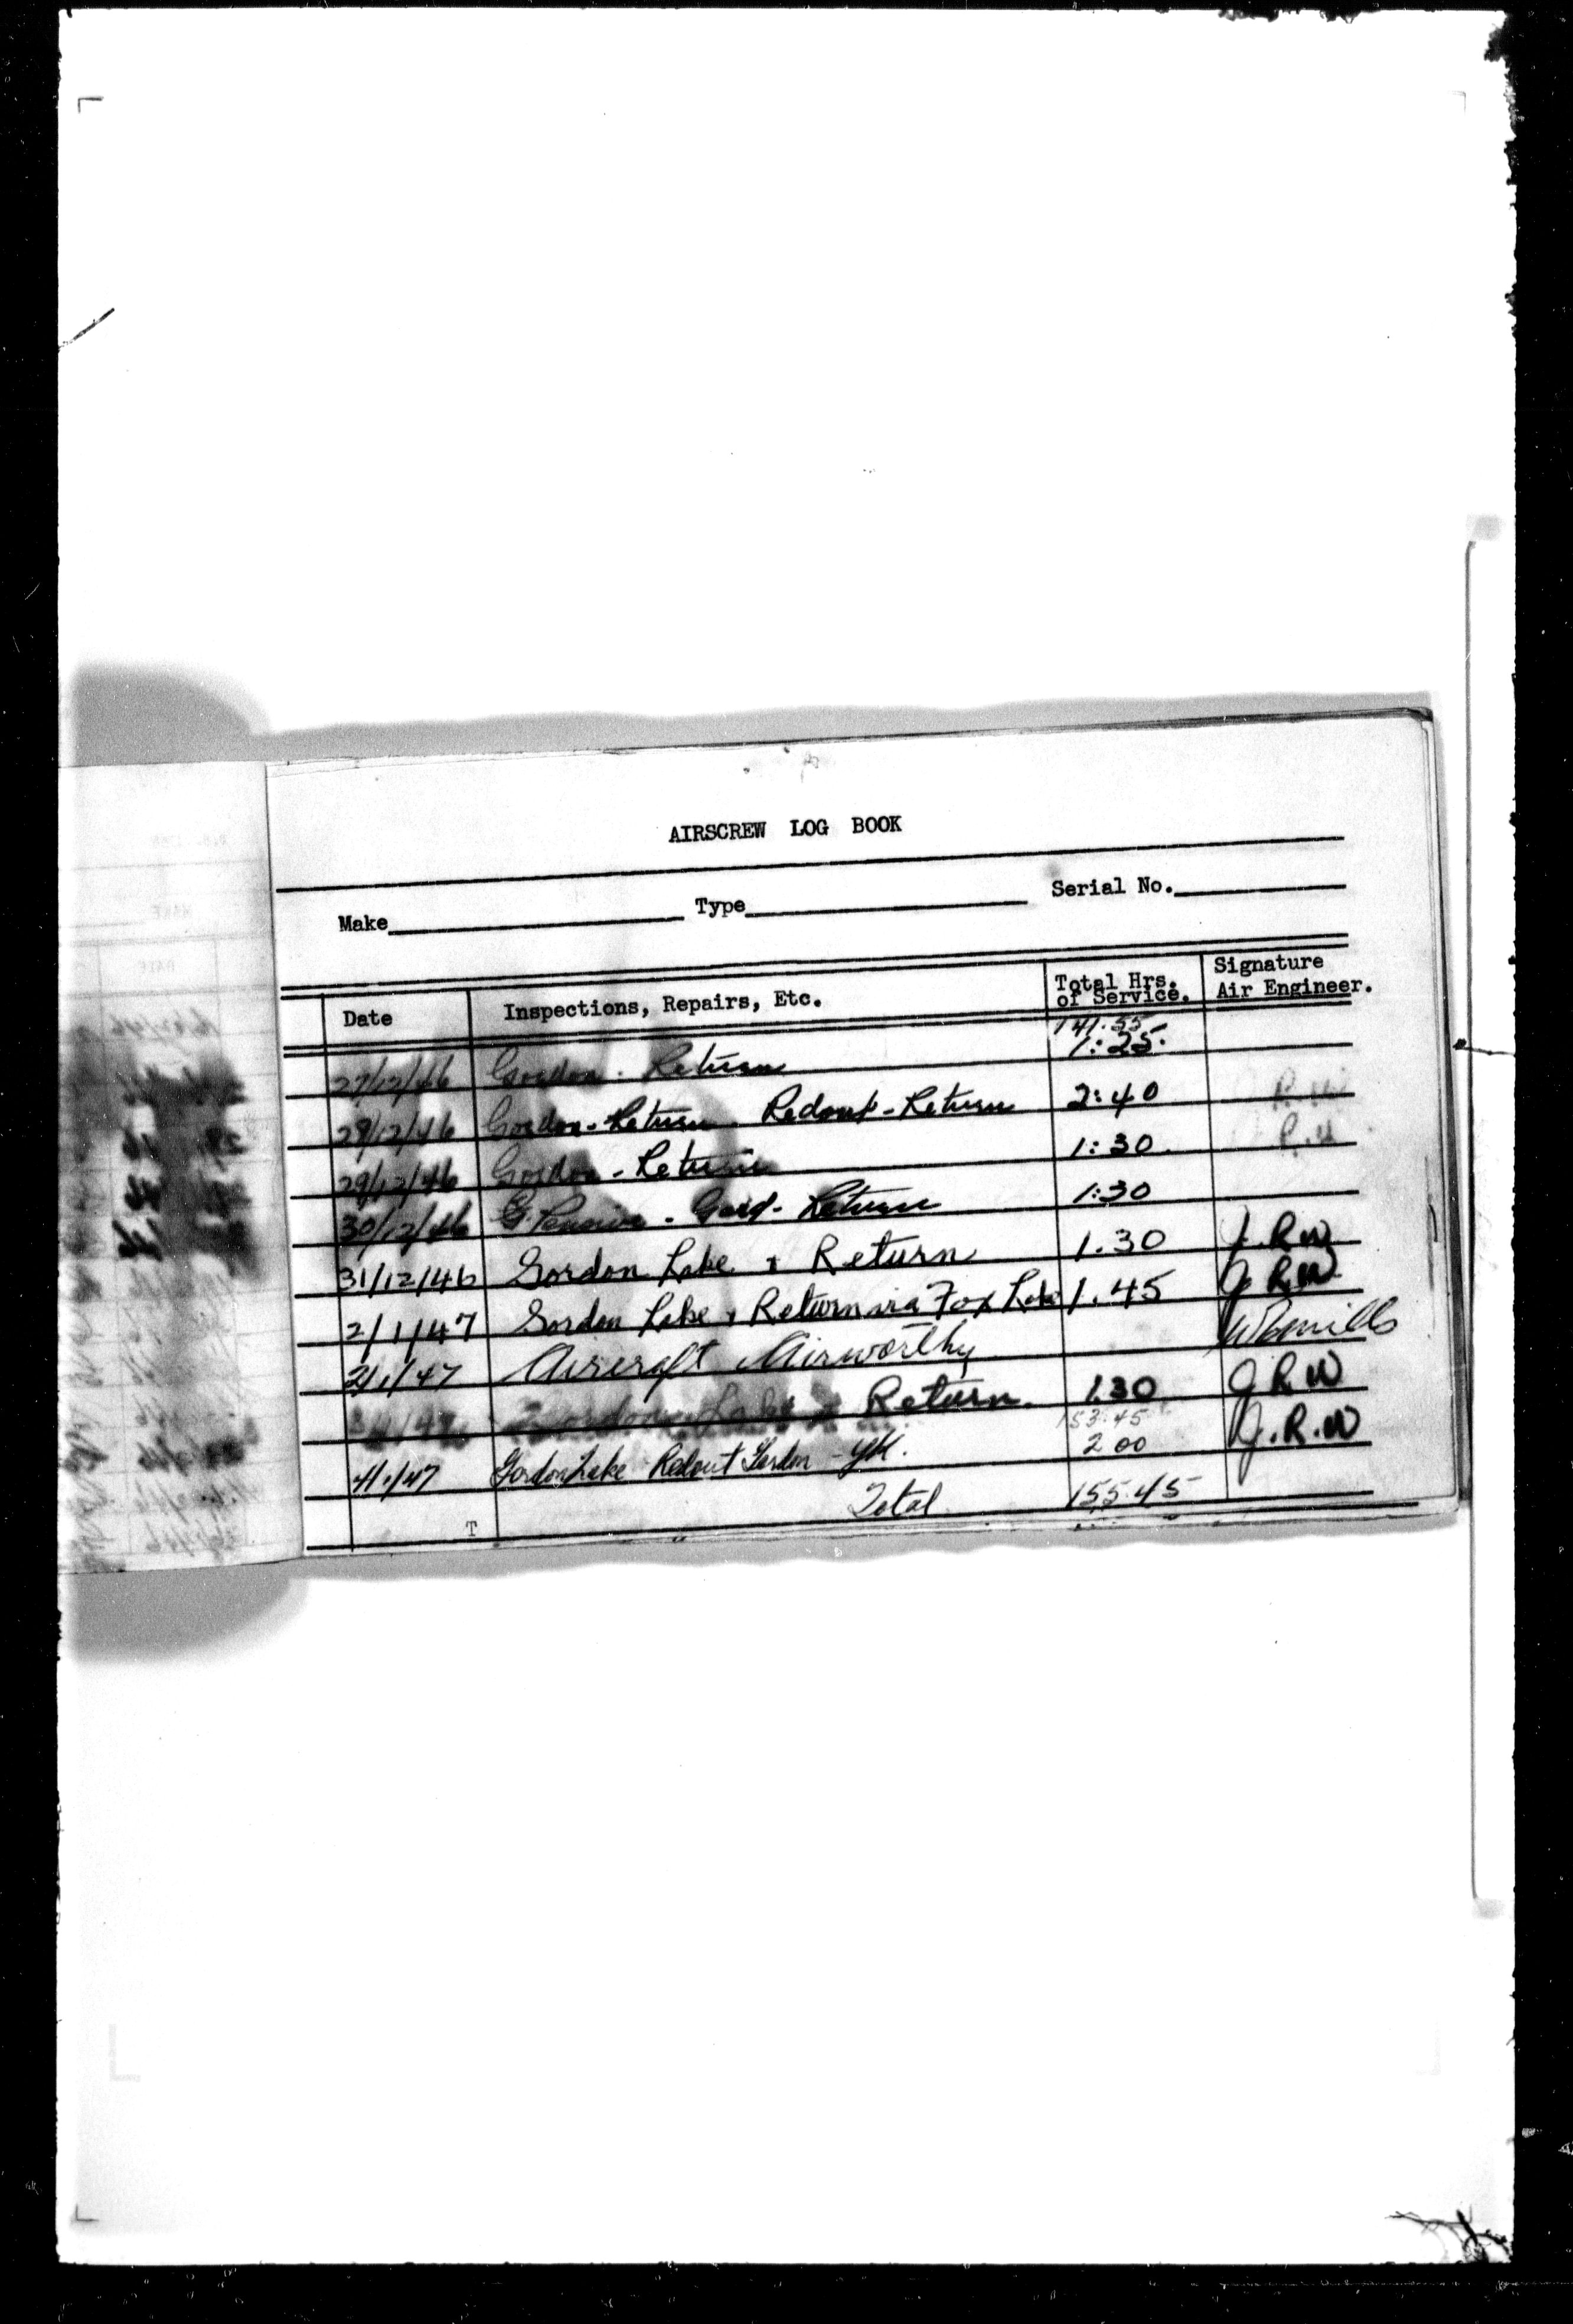 AIRSCREW LOG BOOK
Make Type Serial No.
Date Inspections, Repairs, Etc. Total Hrs. of Service. Signature Air Engineer.
141:55
27/12/46 Gordon - Return 1:25
29/12/46 Gordon - Return Redout - Return 2:40 R.W
29/12/46 Gordon - Return 1:30 R.W
30/12/46 - Gord - Return 1:30
31/12/46 Gordon Lake & Return 1.30 J.R.W
2/1/47 Gordon Lake & Return via Fox Lake 1.45 J.R.W
2/1/47 Aircraft Airworthy
Gordon Lake & Return 1.30 J.R.W
153:45
4/1/47 Gordon Lake Redout Gordon - YK. 2 00 J.R.W
Total 155:45
T